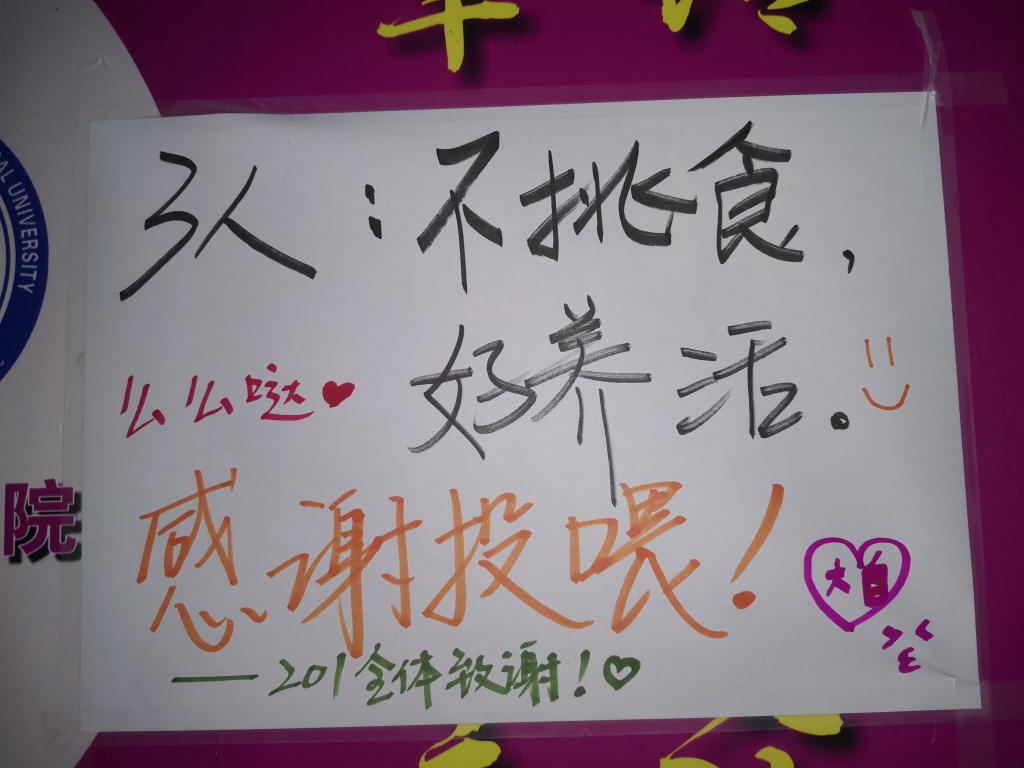 3人：不挑食，
好养活．
么么哒
感谢投喂！
大自
——201全体致谢！
UNIVERSITY
院